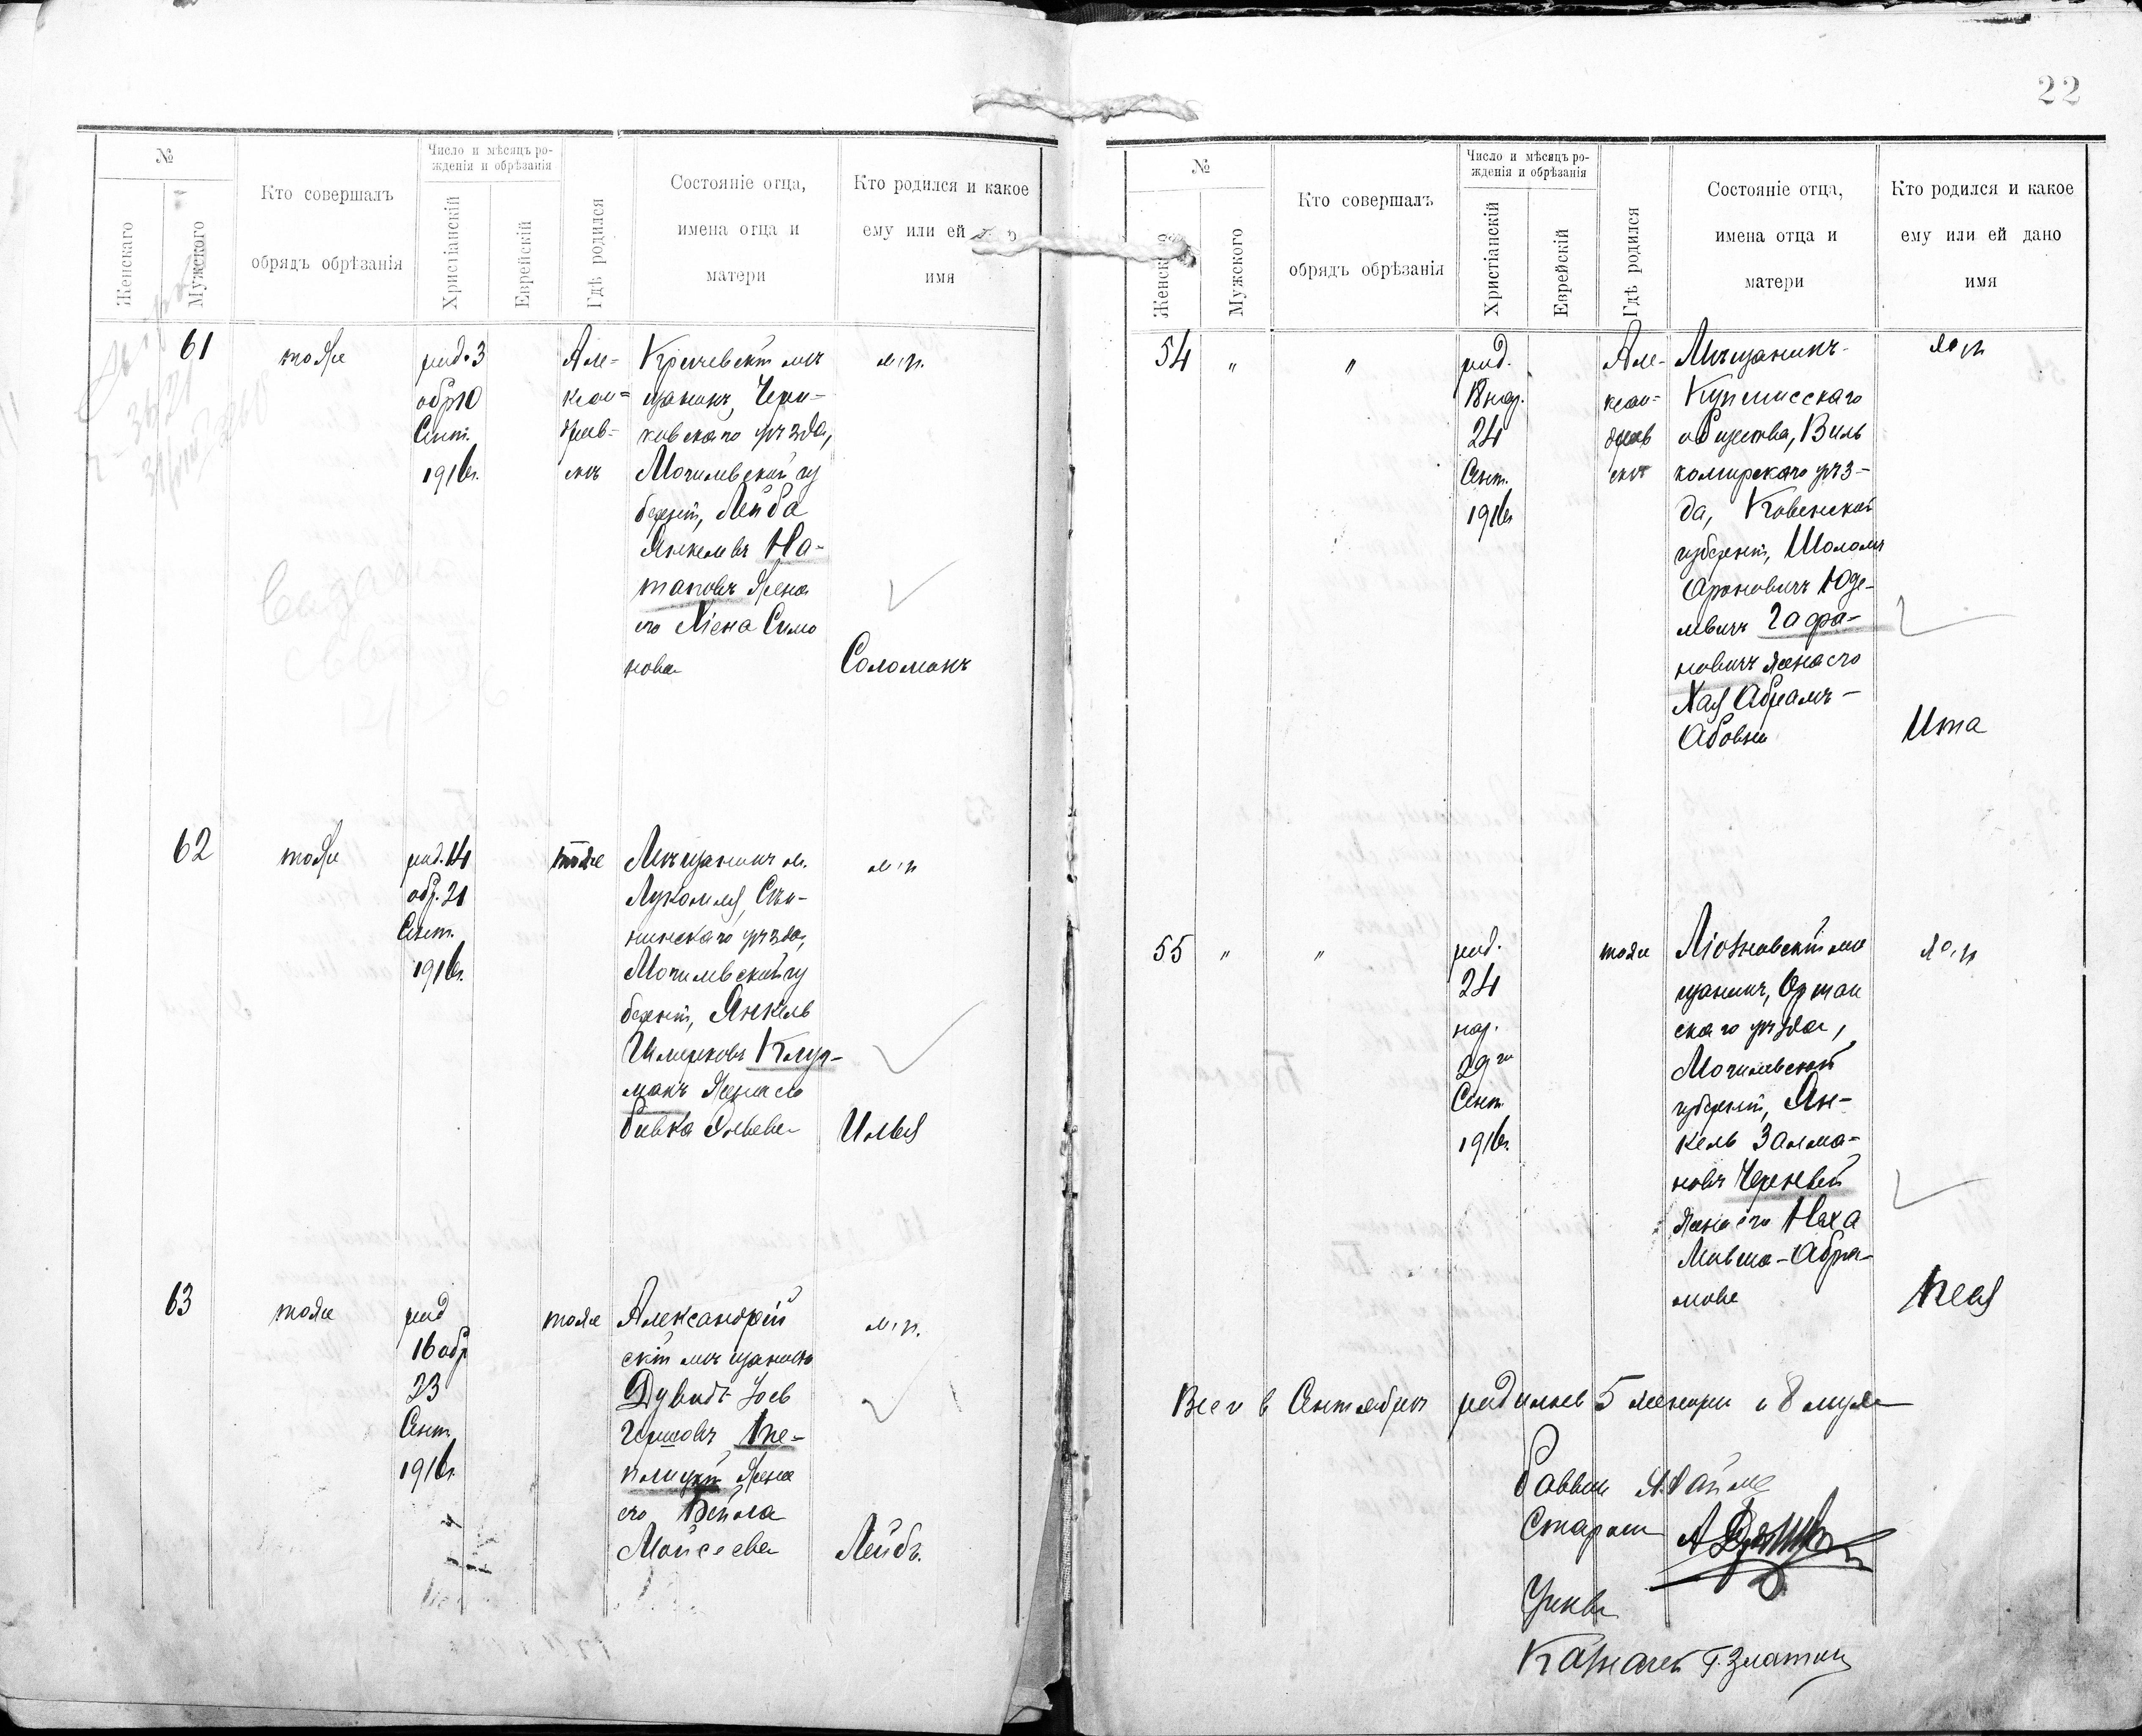 22
№
Женскаго
Мужского
Кто совершалъ
обрядъ обрѣзанія
Число и мѣсяцъ ро-
жденія и обрѣзанія
Христіанскій
Еврейскій
Гдѣ родился
Состояніе отца,
имена отца и
матери
Кто родился и какое
ему или ей
имя
61
тоже
род. 3
обр 10
Сент.
1916г.
Але-
ксан-
дров-
скъ
Кричевскій мѣ
щанинъ, Чери-
ковскаго уѣзда,
Могилевской гу
берніи, Лейба
Янкелевъ На-
тановъ жена
его Хіена Симо
нова
м.п.
Соломонъ
62
тоже
род. 14
обр. 21
Сент.
1916г.
тоже
Мѣщанинъ м.
Лукомля, Сѣн-
нинскаго уѣзда,
Могилевской гу
берніи, Янкель
Шмерковъ
манъ жена его
Ривка
м.п
Илья
63
тоже
род
16 обр
23
Сент.
1916г.
тоже
Александрій
скій мѣщанинъ
Дувидъ
Гиршовъ
жена
его Бейла
Мойсеева
м.п.
Лейбъ.
№
Женскаго
Мужского
Кто совершалъ
обрядъ обрѣзанія
Число и мѣсяцъ ро-
жденія и обрѣзанія
Христіанскій
Еврейскій
Гдѣ родился
Состояніе отца,
имена отца и
матери
Кто родился и какое
ему или ей дано
имя
54 " "
род.
18 нар.
24
Сент.
1916г
Але-
ксан-
дров
скъ
Мѣщанинъ
общества, Виль
комирскаго уѣз-
да, Ковенской
губерніи, Шоломъ
Ароновичъ Юде-
левичъ Гафа-
новичъ жена его
Хая Абрамъ-
Абовна
ж.п
Ита
55 " "
род.
24
нар.
29го
Сент.
1916г.
тоже
Ліозновскій мѣ
щанинъ, Оршан
скаго уѣзда,
Могилевской
губерніи, Ян-
кель Залма-
новъ
жена его Неха
Мивша-Абра-
мова
ж.п
Пея
Всего в Сентябрѣ родилось 5 женщин и 8 мужч
Раввин
Староста
Учен
Казначей Г. Златкин